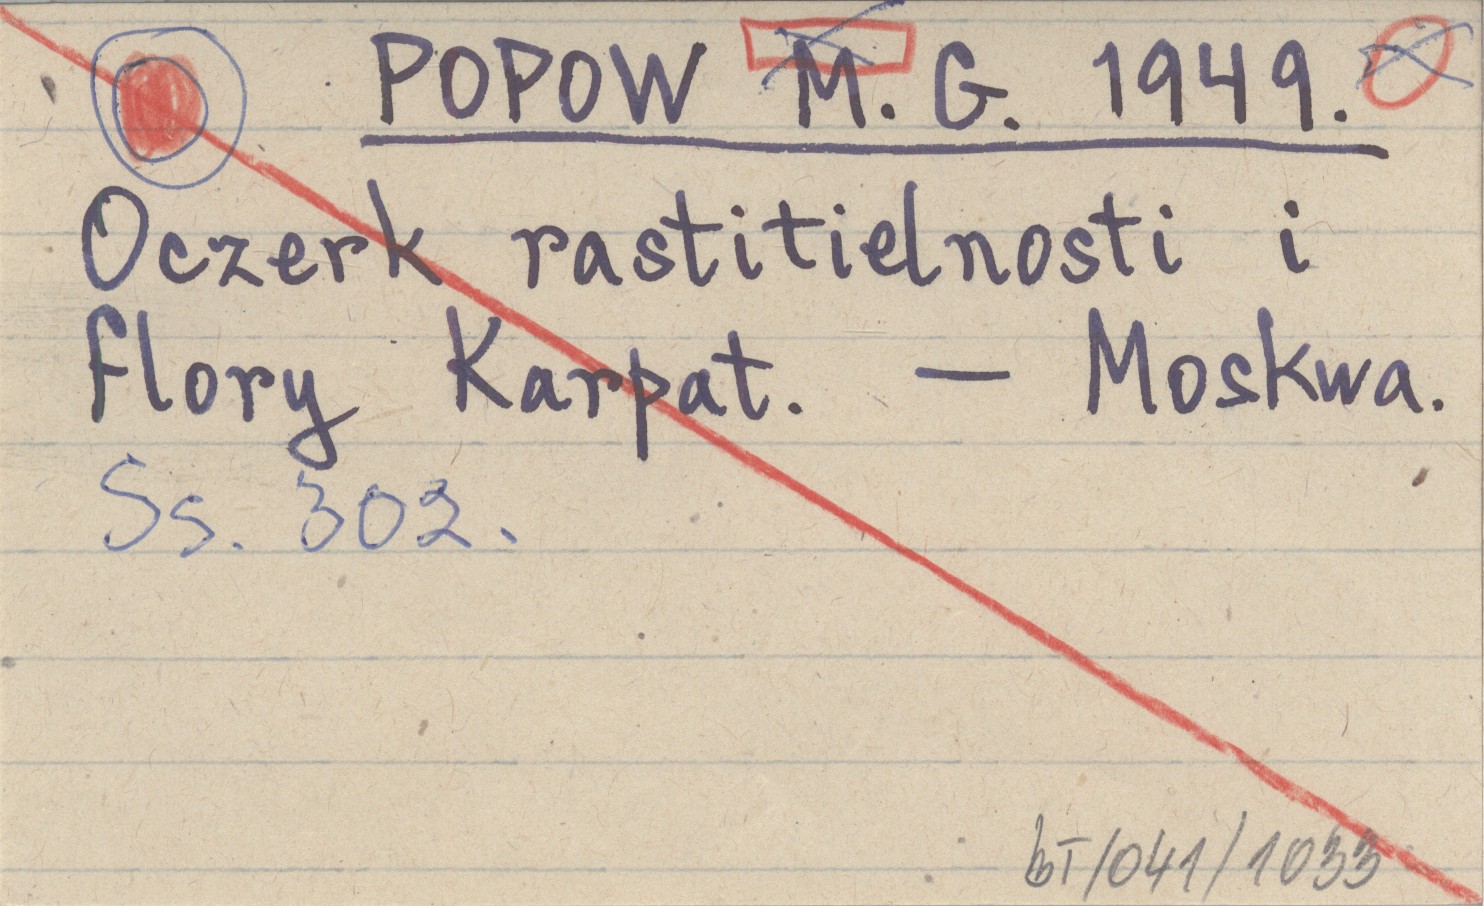 POPOW M. G. 1949.
Oczerk rastitielnosti i
flory Karpat. — Moskwa.
Ss. 302.
bT/041/1033